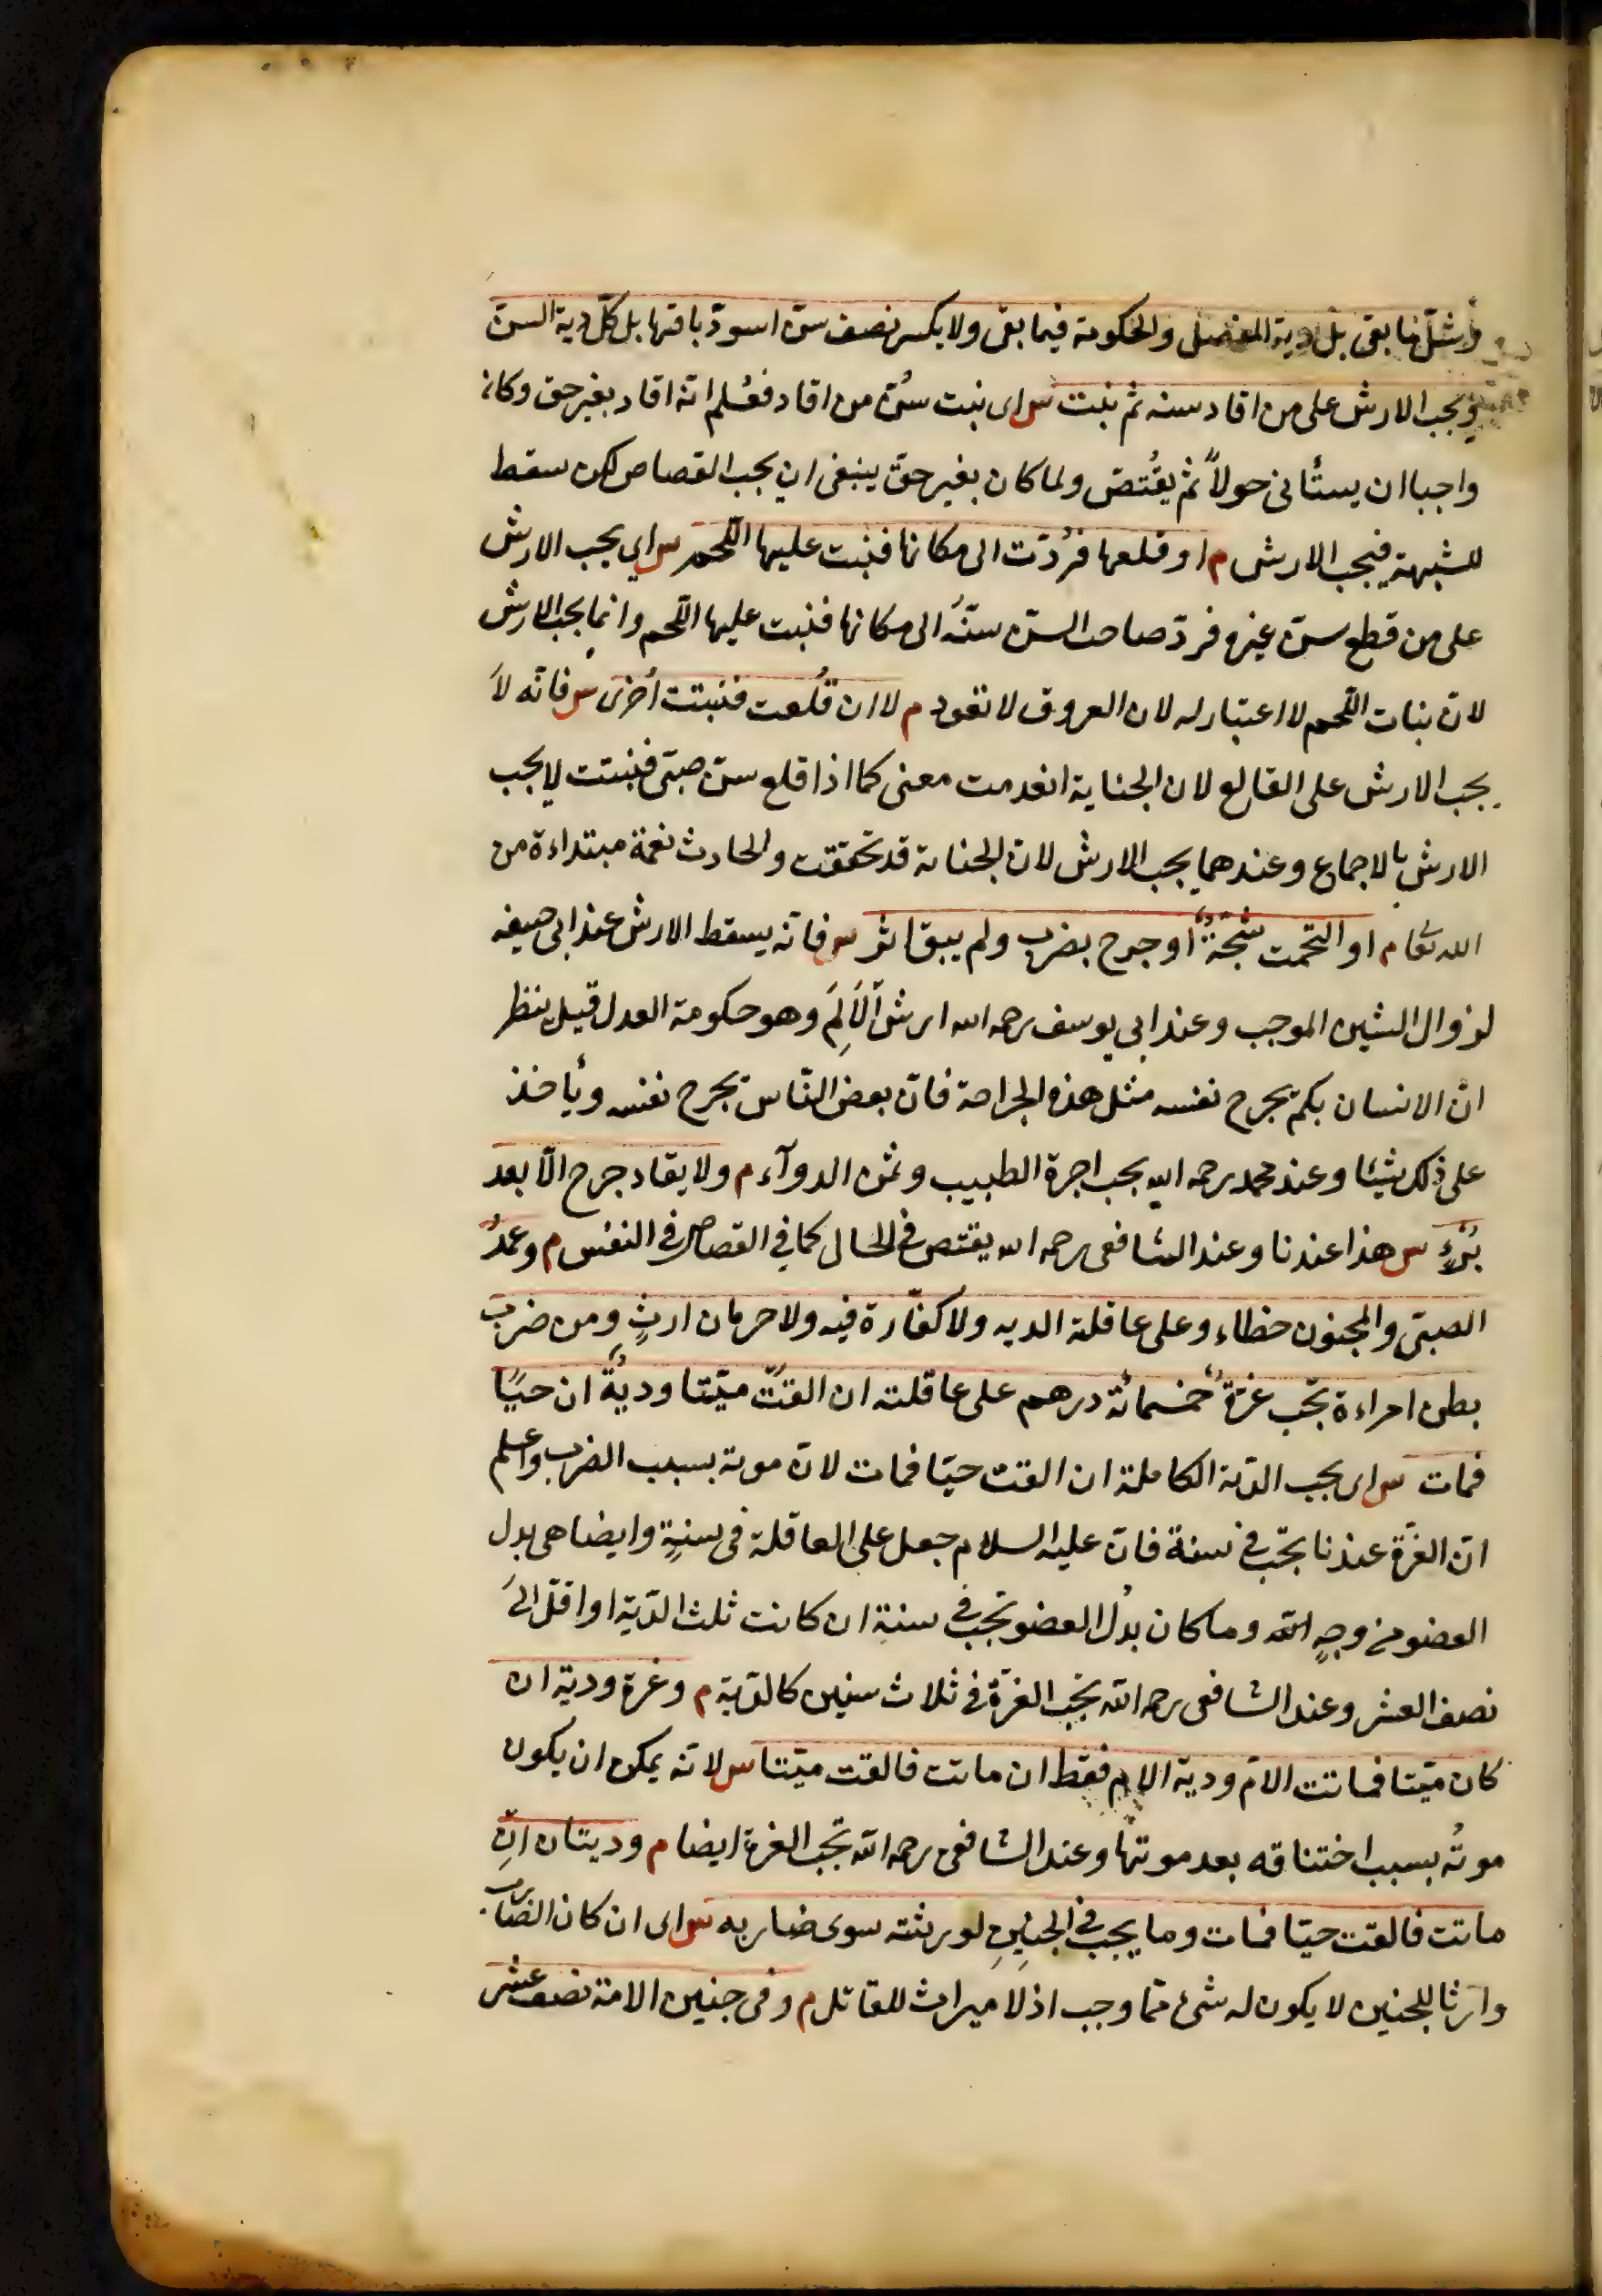 وشلّ ما بقى بل دية المفصل والحكومة فيما بقى ولا بكسر نصف سنّ اسودّ باقيها بل كلّ دية السنّ
ويجب الارش على من اقاد سنه ثم نبت س اى نبت سنّ من اقاد فعُلم انه اقاد بغير حق وكان
واجبا ان يستأنى حولاً ثم يقتصّ ولما كان بغير حق ينبغى ان يجب القصاص لكن سقط
للشبهة فيجب الارش م او قلعها فرُدّت الى مكانها فنبت عليها اللّحم س اي يجب الارش
على من قطع سنّ غيره فردّ صاحب السنّ سنّهُ الى مكانها فنبت عليها اللّحم وانما يجب الارش
لانّ نبات اللّحم لا اعتبار له لان العروق لا تعود م لا ان قُلعت فنبتت اُخرى س فانّه لا
يجب الارش على القالع لان الجناية انعدمت معنى كما اذا قلع سنّ صبىّ فنبتت لا يجب
الارش بالاجماع وعندهما يجب الارش لانّ الجناية قد تحققت والحادث نعمة مبتداءة من
الله تعا م او التحمت شجّةٌ او جرح بضرب ولم يبق اثر س فانّه يسقط الارش عند ابى حنيفه
لزوال الشين الموجب وعند ابي يوسف رحمه الله ارش الاَلَمِ وهو حكومة العدل قيل ينظر
انّ الانسان بكم يجرح نفسه مثل هذه الجراحة فانّ بعض النّاس يجرح نفسه ويأخذ
على ذلك شيئا وعند محمد رحمه الله يجب اجرة الطبيب وثمن الدوآء م ولا يقاد جرح الّا بعد
بُرْءٍ س هذا عندنا وعند الشافعى رحمه الله يقتص في الحال كما في القصاص في النفس م وعمدُ
الصبىّ والمجنون خطاء وعلى عاقلته الديه ولا كفّارة فيه ولا حرمان ارثٍ ومن ضرب
بطن امراءة تجب غرّةٌ خمسمائة درهم على عاقلته ان القتْ ميّتا وديةٌ ان حيًّا
فمات س اى يجب الدّية الكاملة ان القت حيّا فمات لانّ موته بسبب الضرب واعلم
انّ الغرّة عندنا تجب في سنة فانّ عليه السلام جعل على العاقلة فى سنةٍ وايضا هى بدل
العضو من وجهٍ الله وما كان بدل العضو تجب في سنة ان كانت ثلث الدّية او اقلّ الىَ
نصف العشر وعند الشافعى رحمه الله تجب الغرّة في ثلاث سنين كالدّية م وغرة ودية ان
كان ميّتا فماتت الامّ ودية الام فقط ان ماتت فالقت ميّتا س لانّه يمكن ان يكون
موتُه بسبب اختناقه بعد موتها وعند الشافعى رحمه الله تجب الغرة ايضا م وديتان ان
ماتت فالقت حيّا فمات وما يجب في الجنينِ لورثته سوى ضاربه س اى ان كان الضّارب
وارثا للجنين لا يكون له شئ ممّا وجب اذ لا ميراث للقاتل م وفى جنين الامة نصف عشر